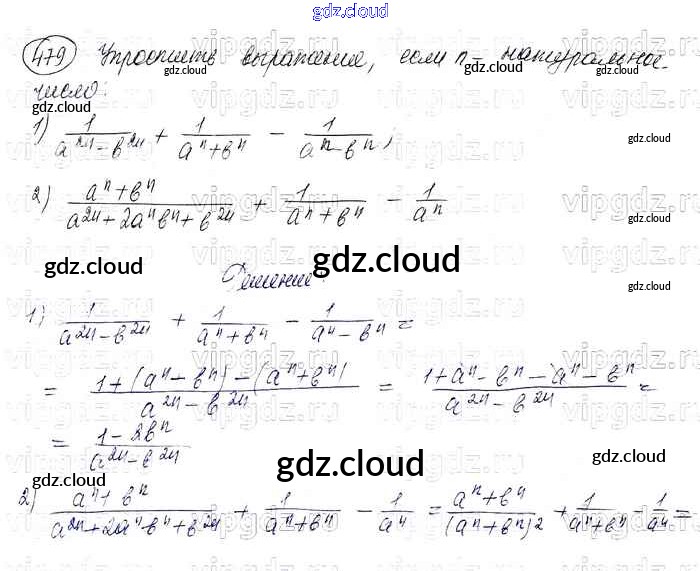 gdz.cloud
479 Упростить выражение, если n – натуральное
число:
1) 1/(a^2n - b^2n) + 1/(a^n + b^n) - 1/(a^n - b^n);
2) (a^n + b^n)/(a^2n + 2a^n b^n + b^2n) + 1/(a^n + b^n) - 1/a^n
gdz.cloud gdz.cloud gdz.cloud
Решение:
1) 1/(a^2n - b^2n) + 1/(a^n + b^n) - 1/(a^n - b^n) =
= (1 + (a^n - b^n) - (a^n + b^n))/(a^2n - b^2n) = (1 + a^n - b^n - a^n - b^n)/(a^2n - b^2n) =
= (1 - 2b^n)/(a^2n - b^2n)
gdz.cloud gdz.cloud gdz.cloud
2) (a^n + b^n)/(a^2n + 2a^n b^n + b^2n) + 1/(a^n + b^n) - 1/a^n = (a^n + b^n)/(a^n + b^n)2 + 1/(a^n + b^n) - 1/a^n =